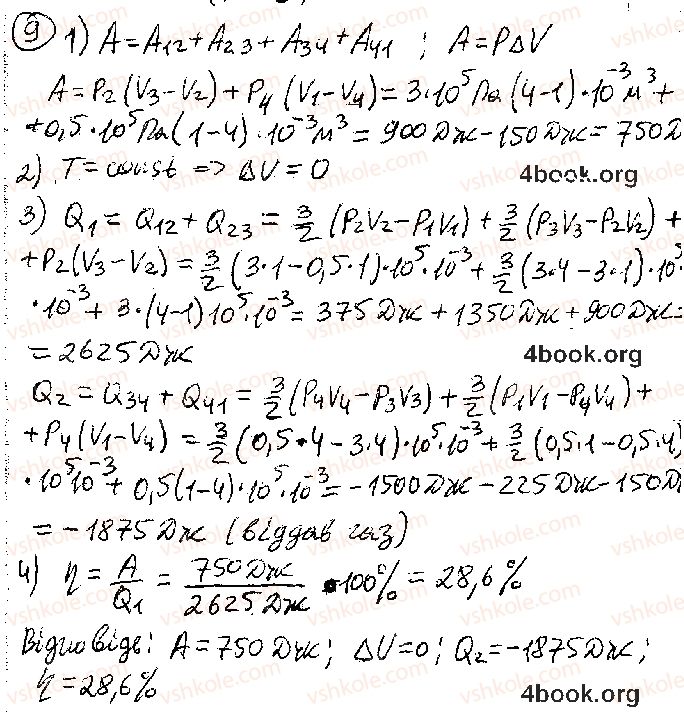 9 1) A = A12 + A23 + A34 + A41 ; A = PΔV
A = P2 (V3 − V2) + P4 (V1 − V4) = 3·10^5 Па (4−1)·10^-3 м^3 +
+ 0,5·10^5 Па (1−4)·10^-3 м^3 = 900 Дж − 150 Дж = 750 Д
2) T = const => ΔU = 0
4book.org
3) Q1 = Q12 + Q23 = 3/2 (P2V2 − P1V1) + 3/2 (P3V3 − P2V2) +
+ P2 (V3 − V2) = 3/2 (3·1 − 0,5·1)·10^5·10^-3 + 3/2 (3·4 − 3·1)·10^5
·10^-3 + 3·(4−1) 10^5·10^-3 = 375 Дж + 1350 Дж + 900 Дж =
= 2625 Дж
4book.org
Q2 = Q34 + Q41 = 3/2 (P4V4 − P3V3) + 3/2 (P1V1 − P4V4) +
+ P4 (V1 − V4) = 3/2 (0,5·4 − 3·4)·10^5·10^-3 + 3/2 (0,5·1 − 0,5·4)
·10^5 10^-3 + 0,5 (1−4)·10^5·10^-3 = −1500 Дж − 225 Дж − 150 Д
= −1875 Дж (віддав газ)
4) η = A/Q1 = 750 Дж/2625 Дж · 100% = 28,6%
Відповідь: A = 750 Дж ; ΔU = 0 ; Q2 = −1875 Дж ;
η = 28,6%
4book.org